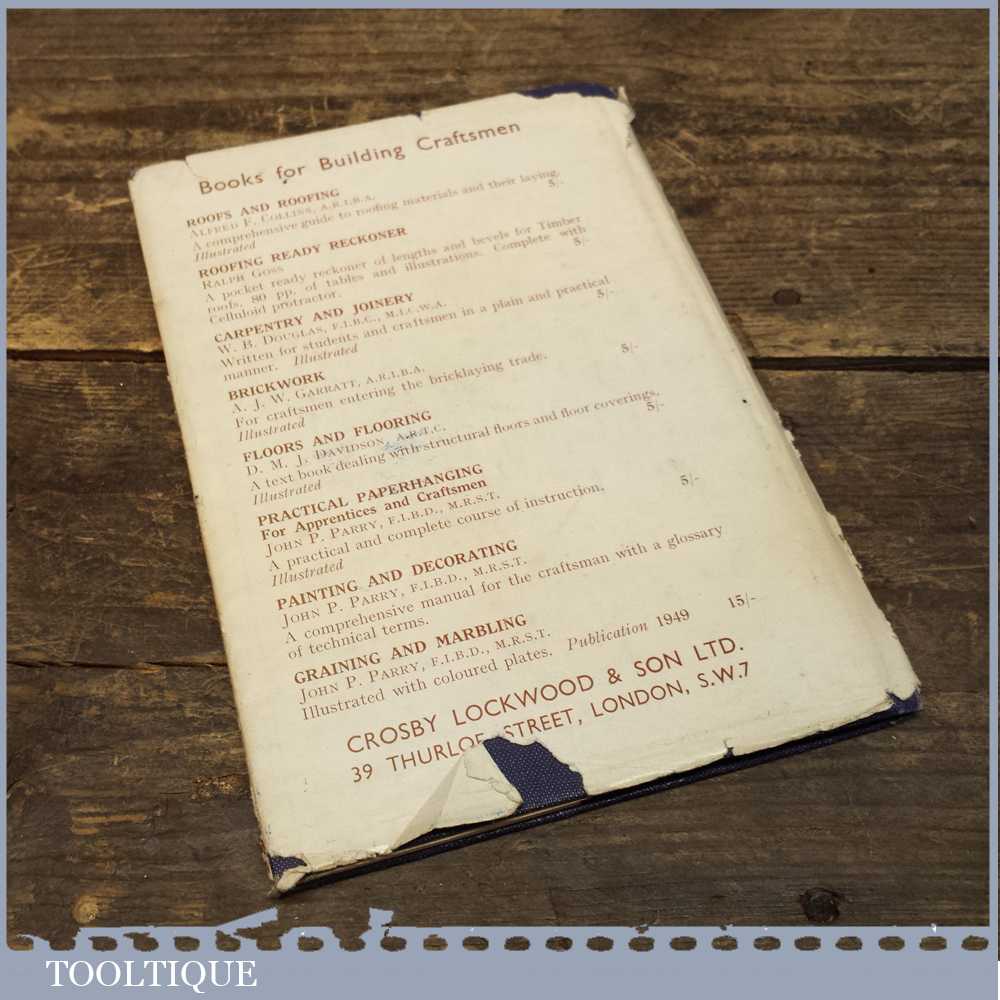 Books for Building Craftsmen
ROOFS AND ROOFING
ALFRED F. COLLINS, A.R.I.B.A.
A comprehensive guide to roofing materials and their laying.
Illustrated 5/-
ROOFING READY RECKONER
RALPH GOSS
A pocket ready reckoner of lengths and bevels for Timber
roofs. 80 pp. of tables and illustrations. Complete with
Celluloid protractor. 5/-
CARPENTRY AND JOINERY
W. B. DOUGLAS, F.I.B.C., M.I.C.W.A.
Written for students and craftsmen in a plain and practical
manner. Illustrated 5/-
BRICKWORK
A. J. W. GARRATT, A.R.I.B.A.
For craftsmen entering the bricklaying trade.
Illustrated 5/-
FLOORS AND FLOORING
D. M. J. DAVIDSON, A.R.T.C.
A text book dealing with structural floors and floor coverings.
Illustrated 5/-
PRACTICAL PAPERHANGING
For Apprentices and Craftsmen
JOHN P. PARRY, F.I.B.D., M.R.S.T.
A practical and complete course of instruction.
Illustrated 5/-
PAINTING AND DECORATING
JOHN P. PARRY, F.I.B.D., M.R.S.T.
A comprehensive manual for the craftsman with a glossary
of technical terms. 15/-
GRAINING AND MARBLING
JOHN P. PARRY, F.I.B.D., M.R.S.T.
Illustrated with coloured plates. Publication 1949
CROSBY LOCKWOOD & SON LTD.
39 THURLOE STREET, LONDON, S.W.7
TOOLTIQUE